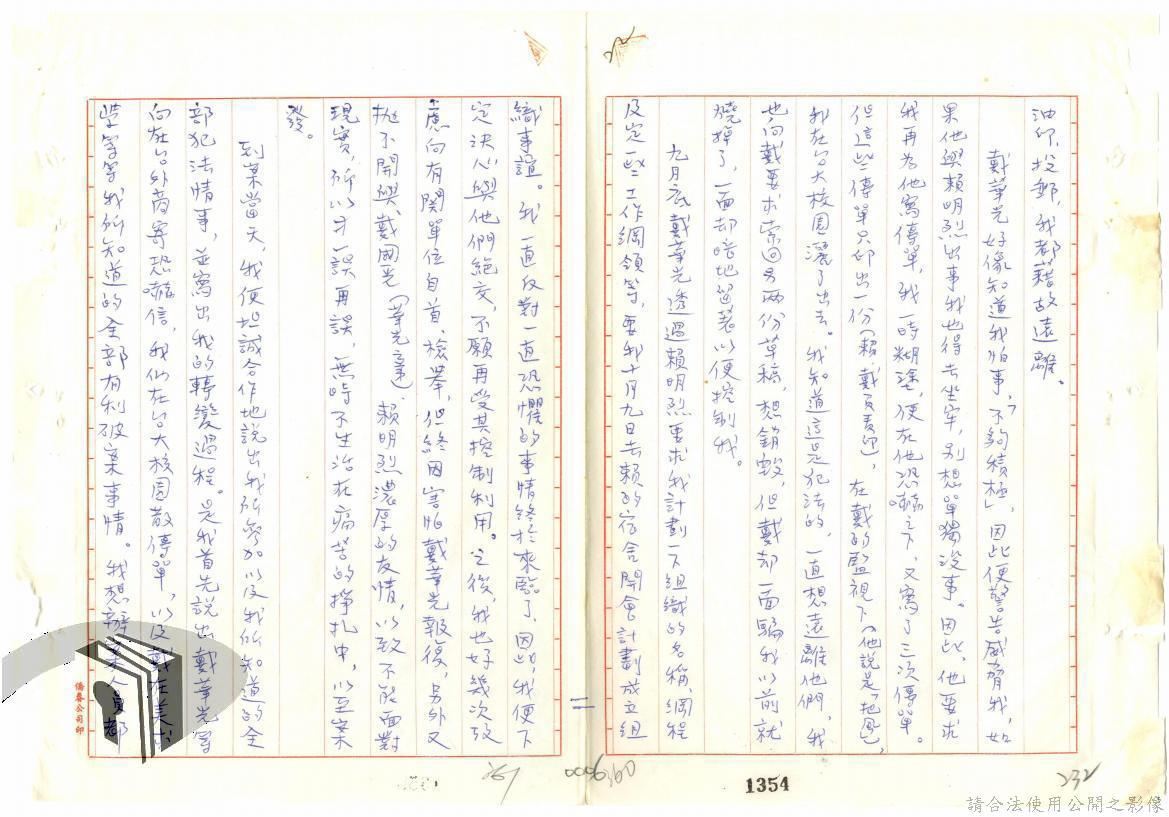 油印、投郵，我都藉故遠離。
戴華光好像知道我怕事，「不夠積極」，因此便警告威脅我，如
果他與賴明烈出事我也得去坐牢，別想單獨沒事。因此，他要求
我再為他寫傳單，我一時糊塗，便在他恐嚇之下，又寫了三次傳單。
但這些傳單只印出一份（賴、戴負責印），在戴的監視下（他說是「把風」），
我在台大校園灑了出去。我知道這是犯法的，一直想遠離他們，我
也向戴要求索回另兩份草稿，想銷毀，但戴却一面騙我以前就
燒掉了，一面却暗地留著以便控制我。
九月底戴華光透過賴明烈要求我計劃一下組織的名稱、綱程
及定一些工作綱領等，要我十月九日去賴的宿舍開會計劃成立組
織事誼。我一直反對一直恐懼的事情終於來臨了，因此，我便下
定決心與他們絕交，不願再受其控制利用。之後，我也好幾次攷
慮向有關單位自首、檢舉，但終因害怕戴華光報復，另外又
拋不開與戴國光（華光之弟）、賴明烈濃厚的友情，以致不能面對
現實，所以才一誤再誤，無時不生活在痛苦的掙扎中，以至案
發。
到案當天，我便坦誠合作地說出我所參加以及我所知道的全
部犯法情事，並寫出我的轉變過程。是我首先說出戴華光等
向在台外商寄恐嚇信，我們在台大校園散傳單，以及戴在美求
學等等我所知道的全部有利破案事情。我想辦案人員都
二
232
1354
0006360
267
僑泰公司印
請合法使用公開之影像